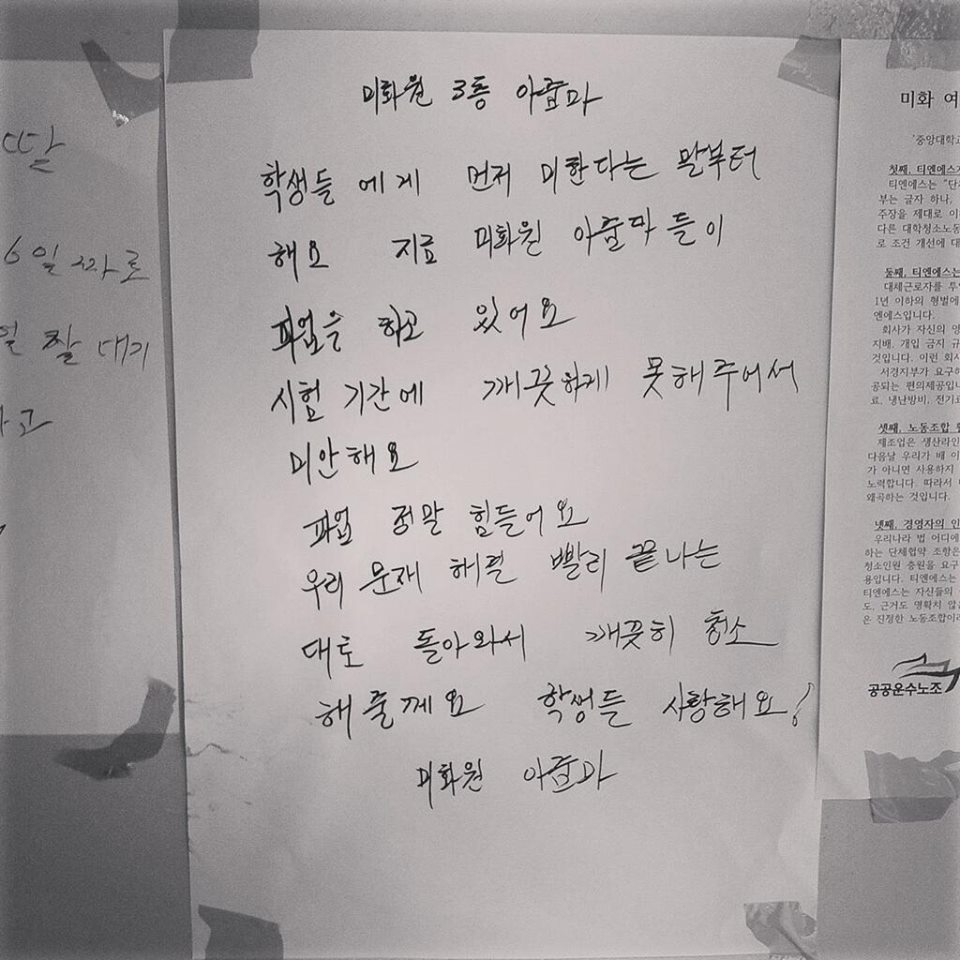 미화원 3층 아줌마
학생들 에게 먼저 미한다는 말부터
해요 지료 미화원 아줌마 들이
파업을 하고 있어요
시험 기간에 깨끗하게 못해주어서
미안해요
파업 정말 힘들어요
우리 문재 해결 빨리 끝나는
대로 돌아와서 깨끗히 청소
해 줄께요 학생들 사랑해요!
미화원 아줌마
딸
6일 짜로
잘 대기
고
미화 여
'중앙대학교
첫째, 티엔에스가
티엔에스는 "단
부는 글자 하나,
주장을 제대로 이
다른 대학청소노동
로 조건 개선에 대
둘째, 티엔에스는
대체근로자를 투
1년 이하의 형벌에
엔에스입니다.
회사가 자신의 명
지배, 개입 금지 규
것입니다. 이런 회사
서경지부가 요구하
공되는 편의제공입니
료, 냉난방비, 전기료
셋째, 노동조합 활
제조업은 생산라인
다음날 우리가 배 이
가 아니면 사용하지
노력합니다. 따라서
왜곡하는 것입니다.
넷째, 경영자의 인
우리나라 법 어디에
하는 단체협약 조항은
청소인원 충원을 요구
용입니다. 티엔에스는
티엔에스는 자신들의
도, 근거도 명확치 않은
은 진정한 노동조합이라
공공운수노조